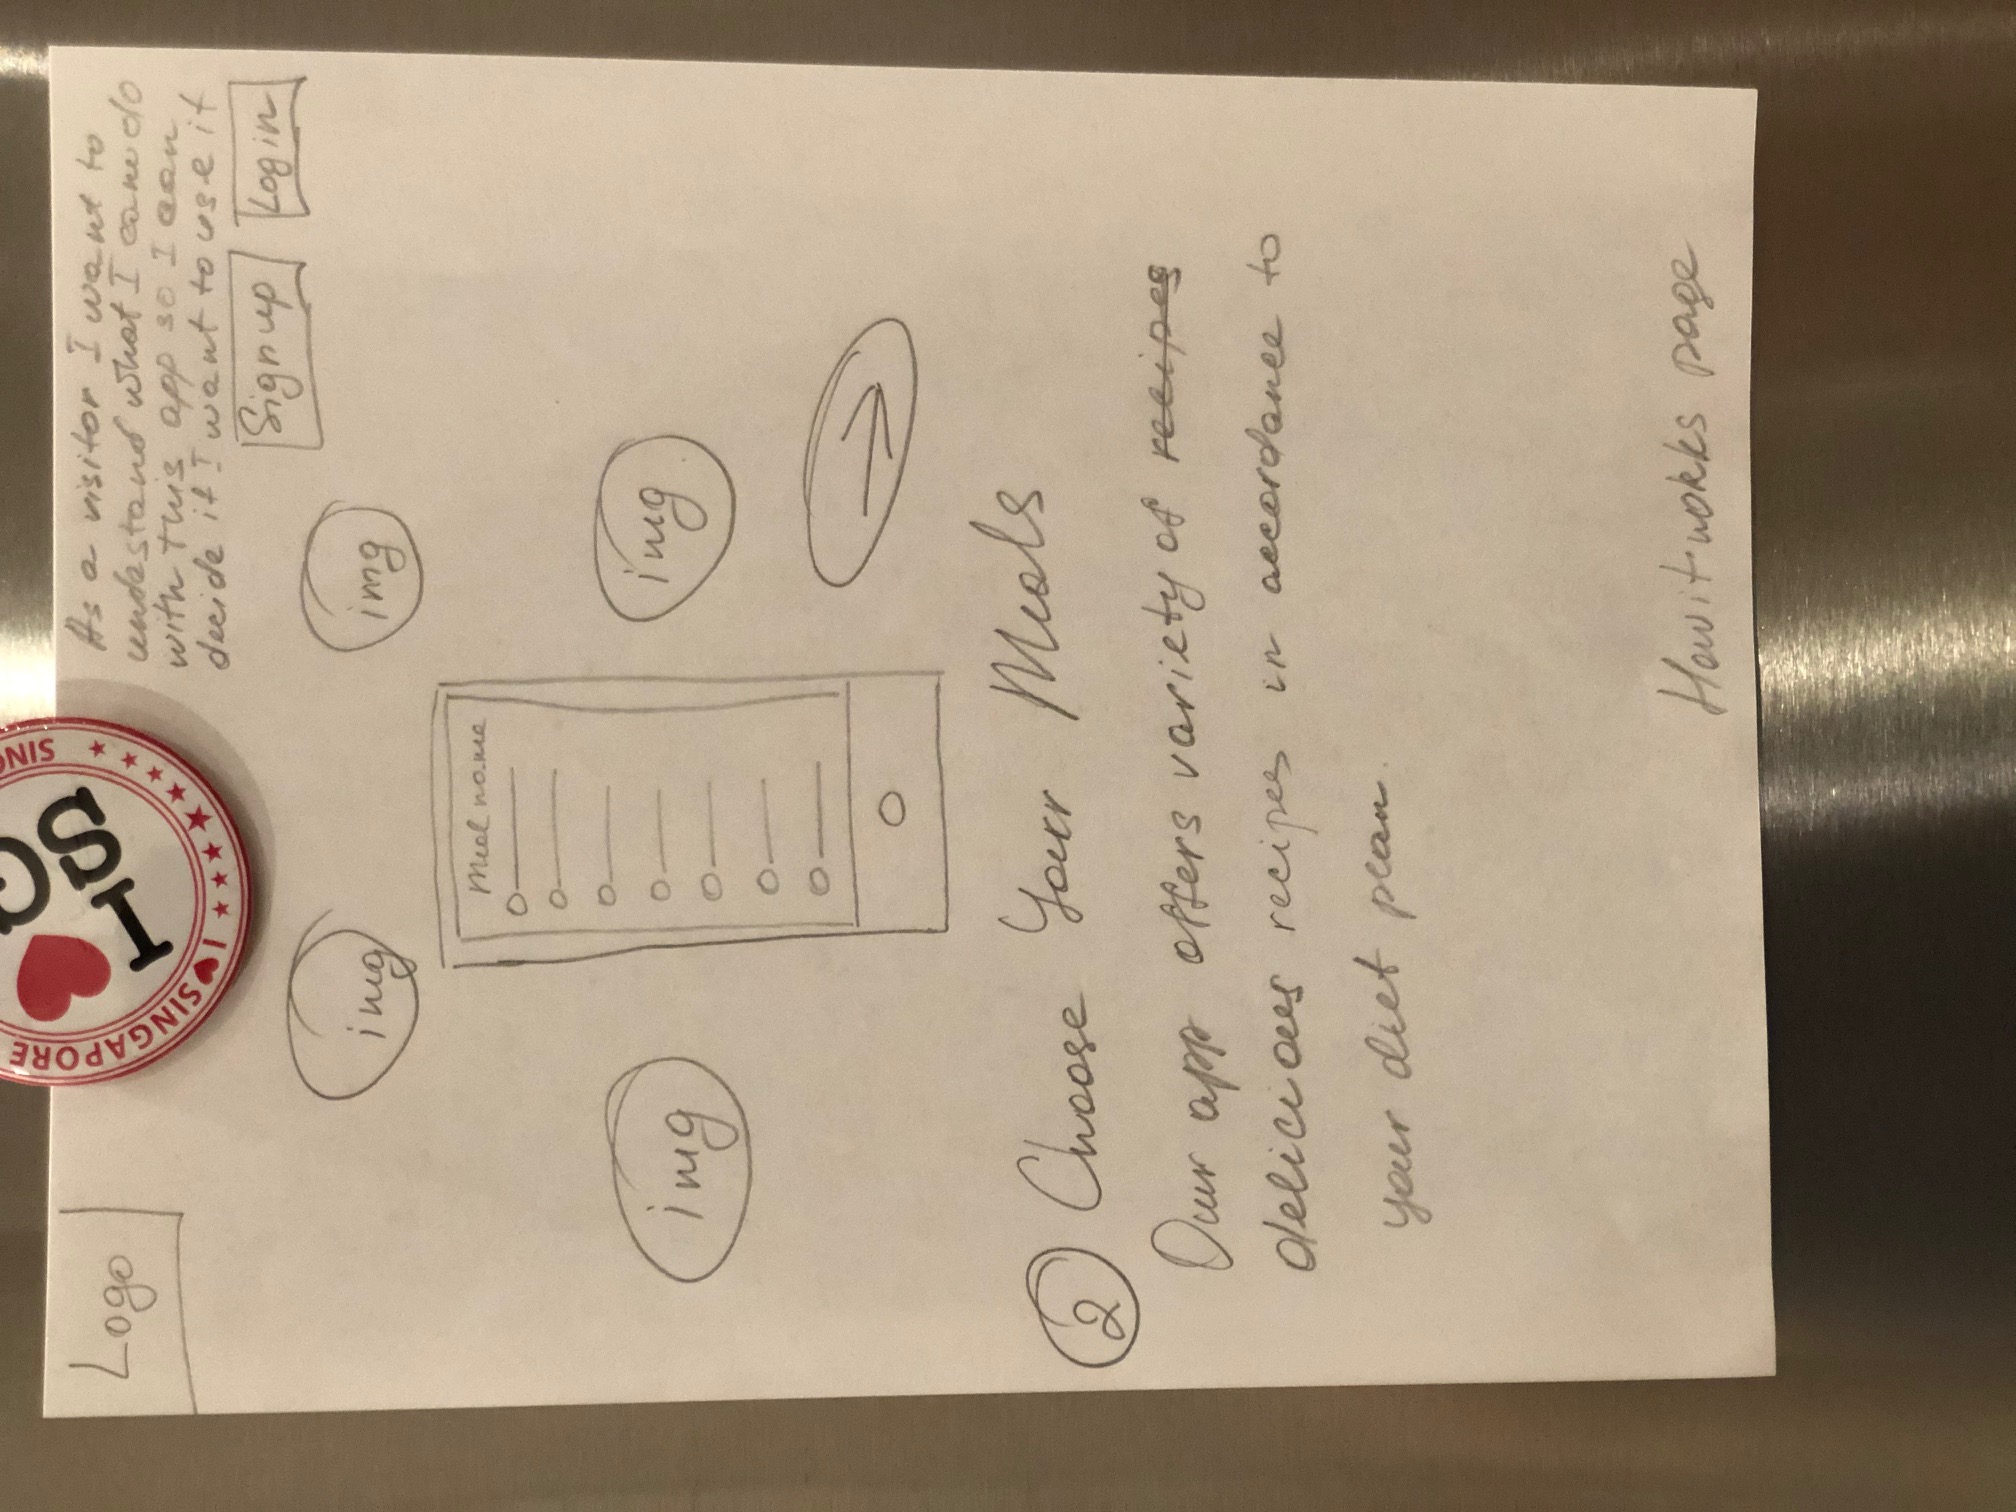 Logo
I ♥ SINGAPORE
SING
I ♥ SG
I ♥ SING
As a visitor I want to
undestand what I can do
with this app so I can
decide if I want to use it
Sign up
Login
img
img
Meal name
img
img
2 Choose Your Meals
Our app offers variety of recipes
delicious recipes in accordance to
your diet plan.
How it works page